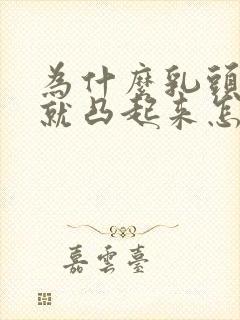 為什麼乳頭
就凸起来怎
嘉雲臺